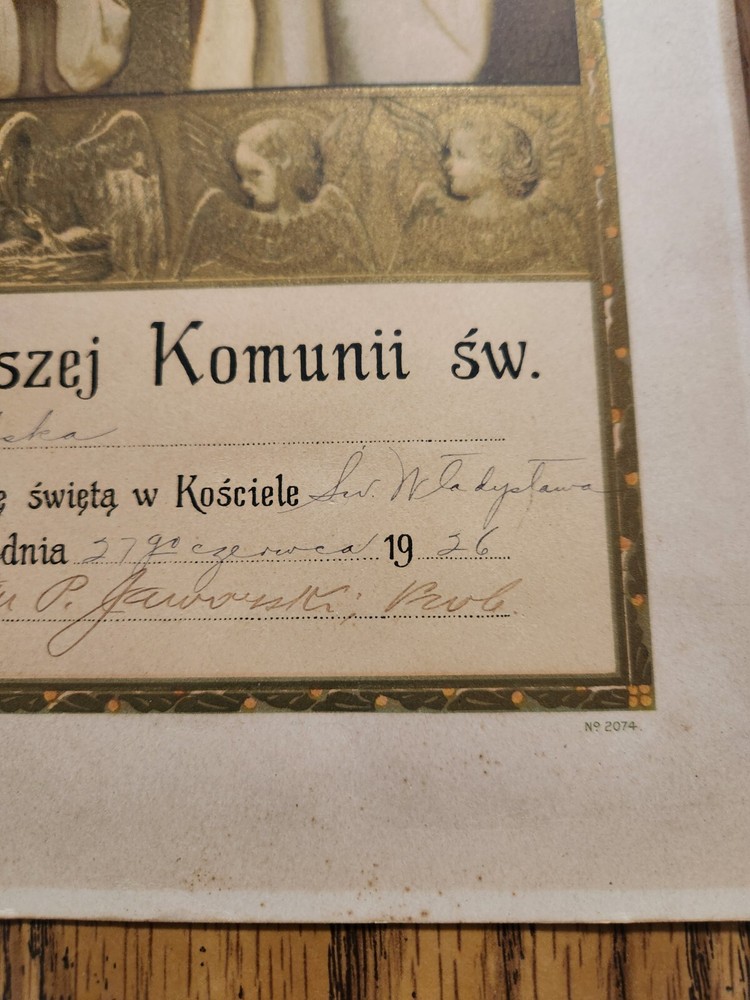 szej Komunii św.
ska
ę świętą w Kościele Św. Władysława
dnia 27go czerwca 1926
P. Jaworski, Prob.
No 2074.